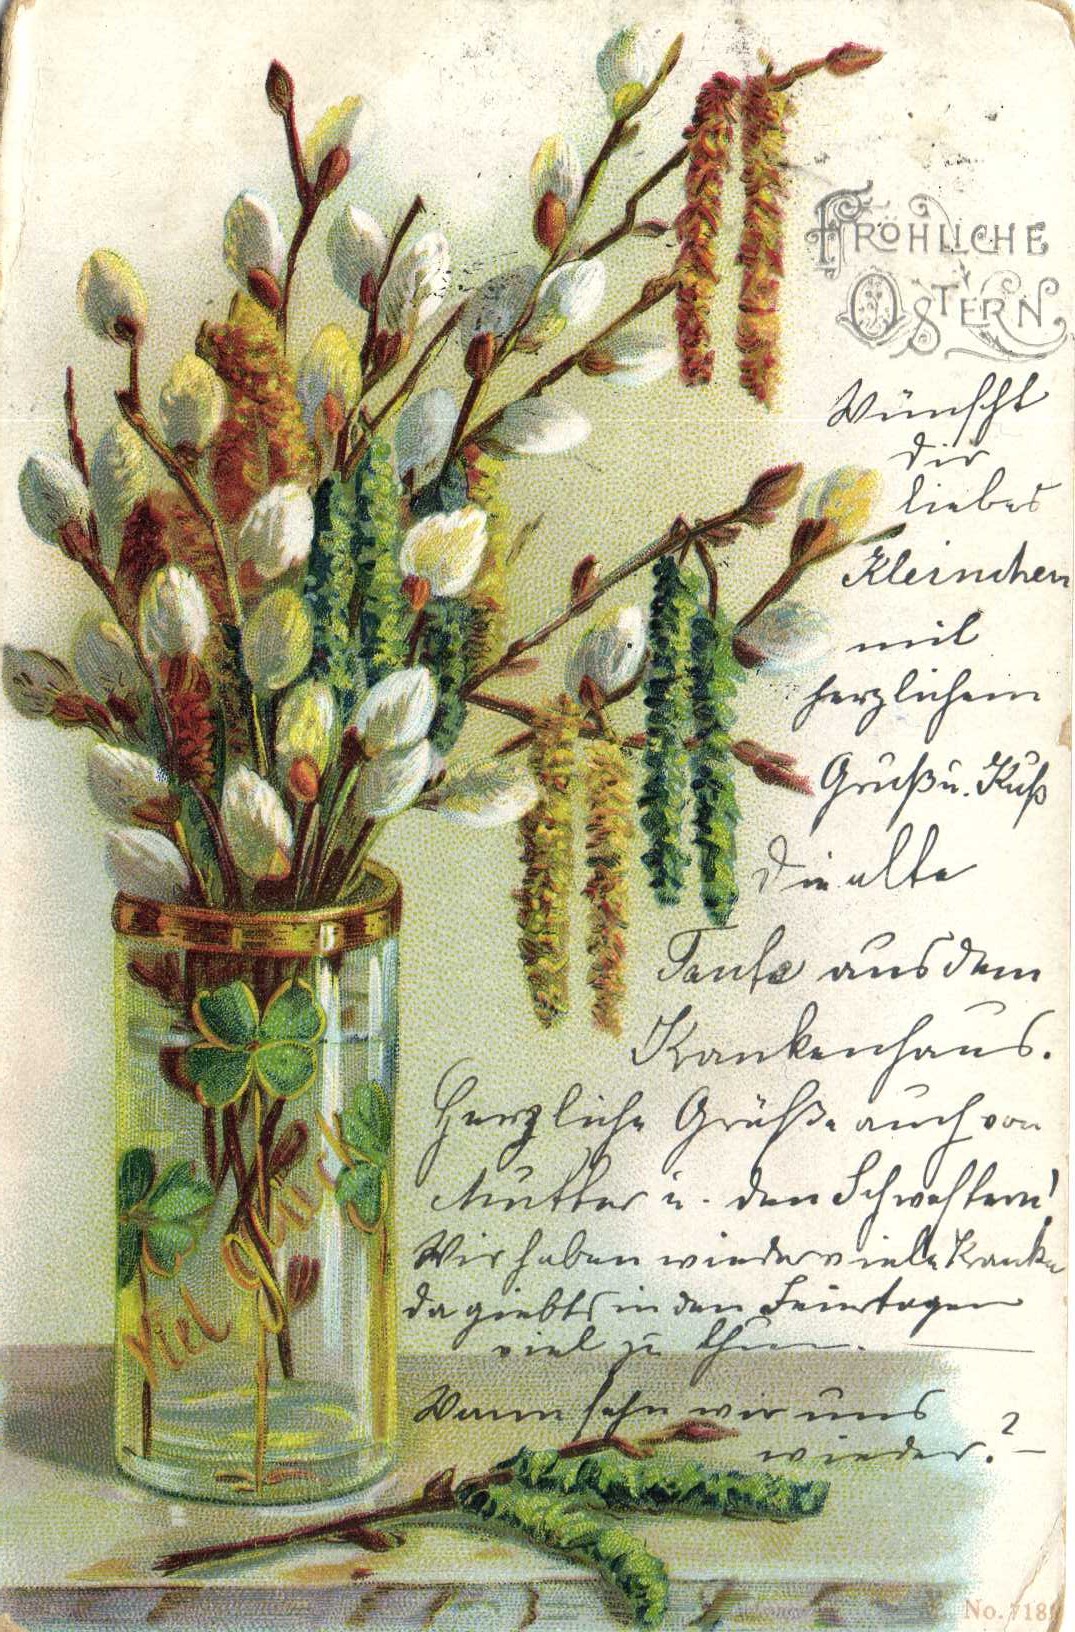 FRÖHLICHE
OSTERN
Wünscht
dir
liebes
Kleinchen
mit
herzlichem
Gruß u. Kuß
die alte
Tante aus dem
Krankenhaus.
Herzliche Grüße auch von
Mutter u. den Schwestern!
Wir haben wieder viele Kranke
da giebts in den Feiertagen
viel zu thun.
Wann sehn wir uns
wieder.?
Viel Glück
No. 718